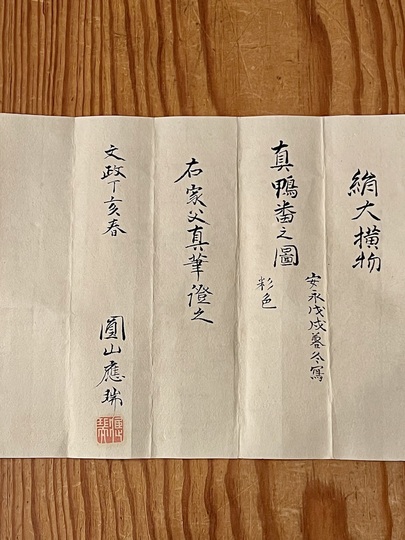 絹大橫物
真鴨番之圖
安永戊戌暮冬寫
彩色
右家父真筆證之
文政丁亥春
圓山應瑞